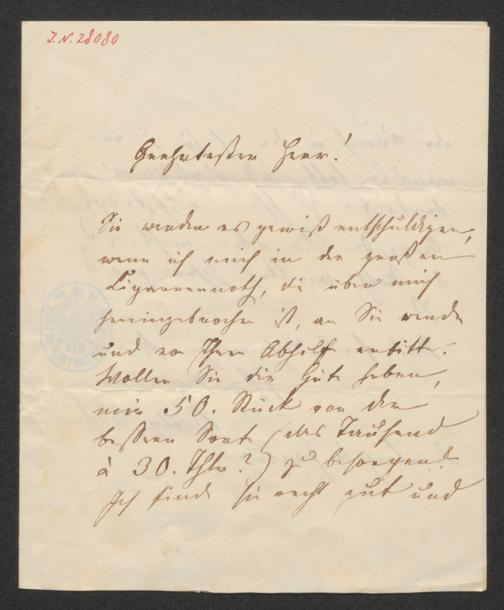 I.N. 28080
Geehrtester Herr!
Sie werden es gewiß entschuldigen,
wenn ich mich in der großen
Cigarrennoth, die über mich
hereingebrochen ist, an Sie wende
und von Ihnen Abhilfe erbitte.
Wollen Sie die Güte haben,
mir 50. Stück von der
besseren Sorte (das Tausend
à 30. Thlr.?) zu besorgen?
Ich finde sie recht gut und